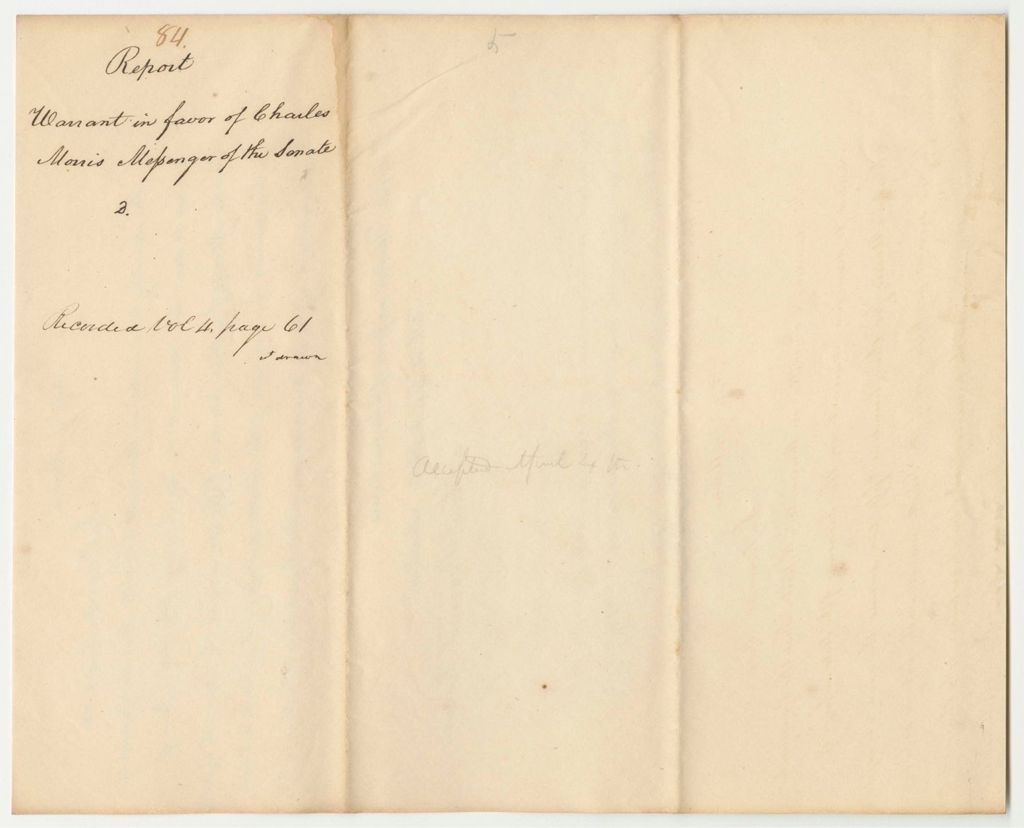 84.
Report
Warrant in favor of Charles
Morris Messenger of the Senate
D.
Recorded Vol 4, page 61
drawn
5
Accepted April 4th.